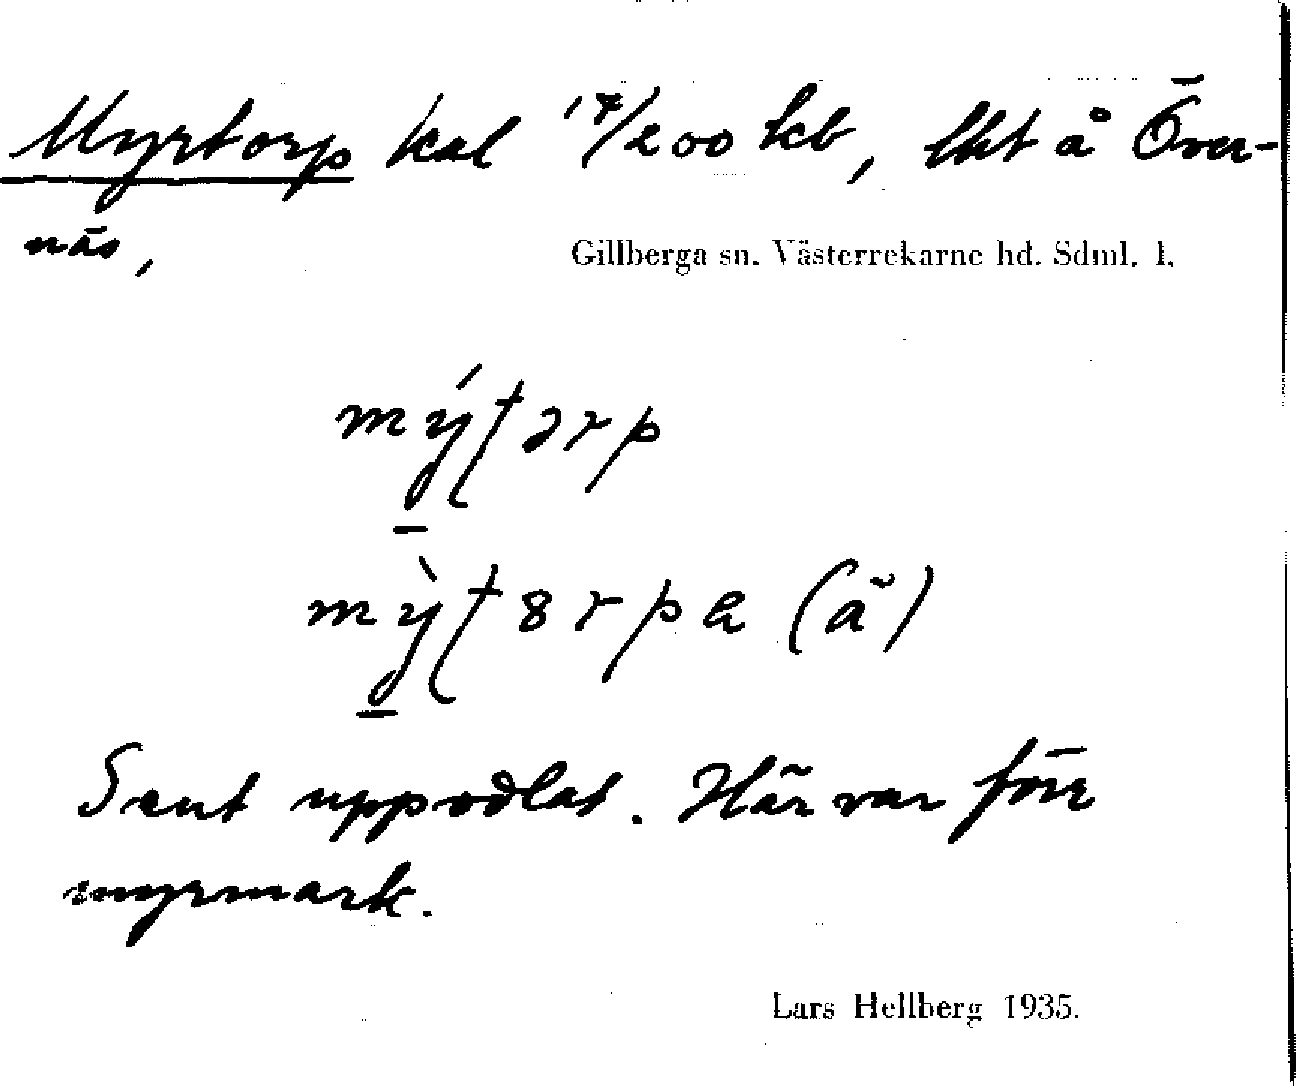 Myrtorp kal 17/200 kb, lht å Över-
näs,
Gillberga sn. Västerrekarne hd. Sdml. l.
Sent uppodlat. Här var förr
myrmark.
Lars Hellberg 1935.